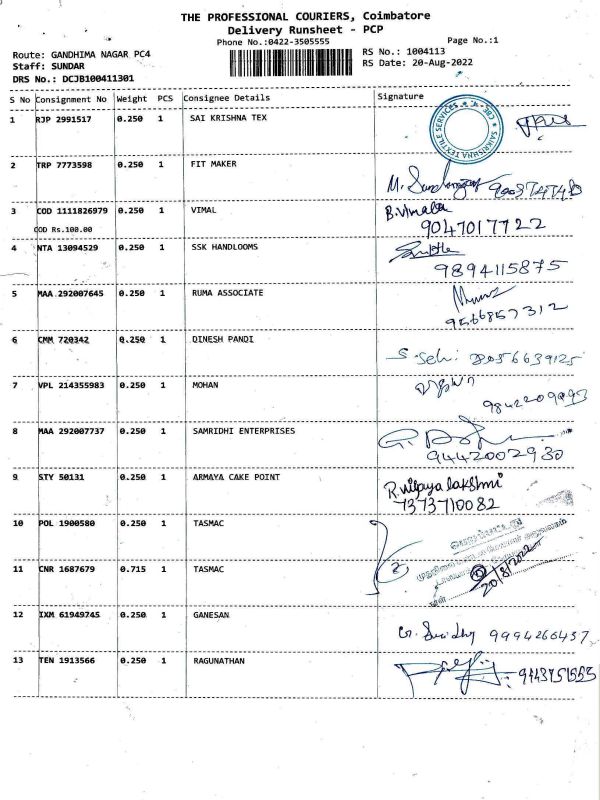 THE PROFESSIONAL COURIERS, Coimbatore
Delivery Runsheet - PCP
Phone No.:0422-3505555
Page No.:1
Route: GANDHIMA NAGAR PC4
Staff: SUNDAR
DRS No.: DCJB100411301
RS No.: 1004113
RS Date: 20-Aug-2022
S No Consignment No Weight PCS Consignee Details Signature
1 RJP 2991517 0.250 1 SAI KRISHNA TEX
SAIKRISHNA TEXTILE SERVICES
2 TRP 7773598 0.250 1 FIT MAKER
3 COD 1111826979 0.250 1 VIMAL B.Vimala
COD Rs.100.00 9047017722
4 NTA 13094529 0.250 1 SSK HANDLOOMS
9894115875
5 MAA 292007645 0.250 1 RUMA ASSOCIATE
9566857312
6 CMM 720342 0.250 1 DINESH PANDI
7 VPL 214355983 0.250 1 MOHAN
8 MAA 292007737 0.250 1 SAMRIDHI ENTERPRISES
9442002930
9 STY 50131 0.250 1 ARMAYA CAKE POINT R.vijaya lakshmi
7373710082
10 POL 1900580 0.250 1 TASMAC
11 CNR 1687679 0.715 1 TASMAC
20/8/2022
12 IXM 61949745 0.250 1 GANESAN
9994266457
13 TEN 1913566 0.250 1 RAGUNATHAN